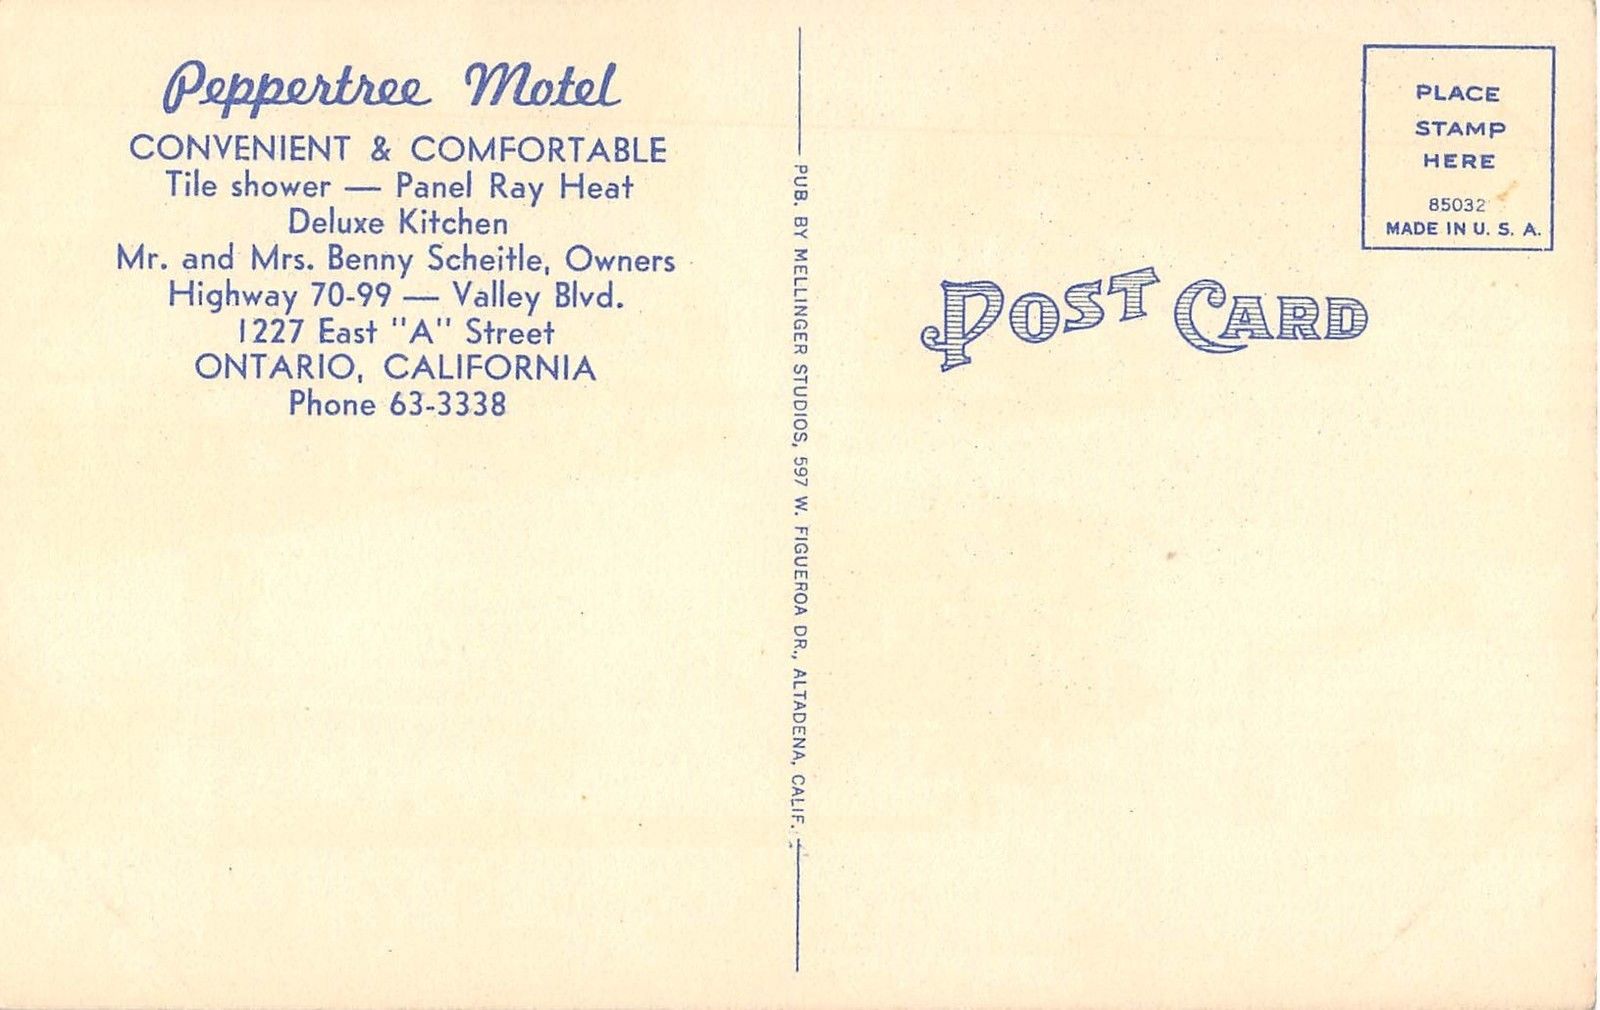 Peppertree Motel
CONVENIENT & COMFORTABLE
Tile shower — Panel Ray Heat
Deluxe Kitchen
Mr. and Mrs. Benny Scheitle, Owners
Highway 70-99 — Valley Blvd.
1227 East "A" Street
ONTARIO, CALIFORNIA
Phone 63-3338
PUB. BY MELLINGER STUDIOS, 597 W. FIGUEROA DR., ALTADENA, CALIF.
PLACE
STAMP
HERE
85032
MADE IN U. S. A.
POST CARD